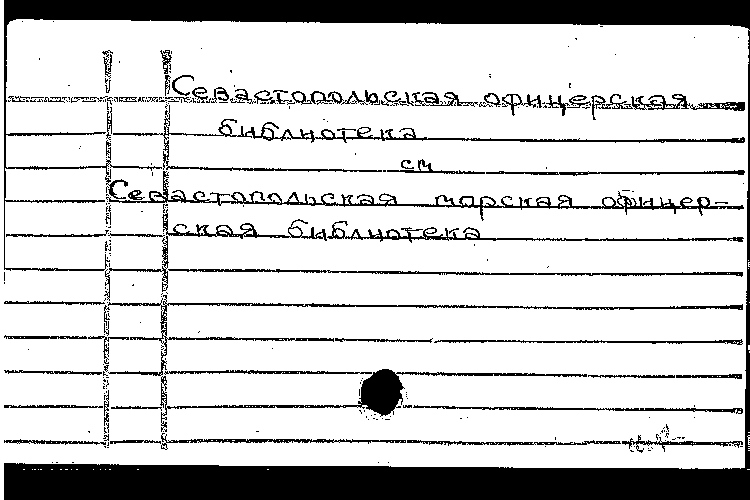 Севастопольская офицерская
библиотека
см
Севастопольская морская офицер-
ская библиотека